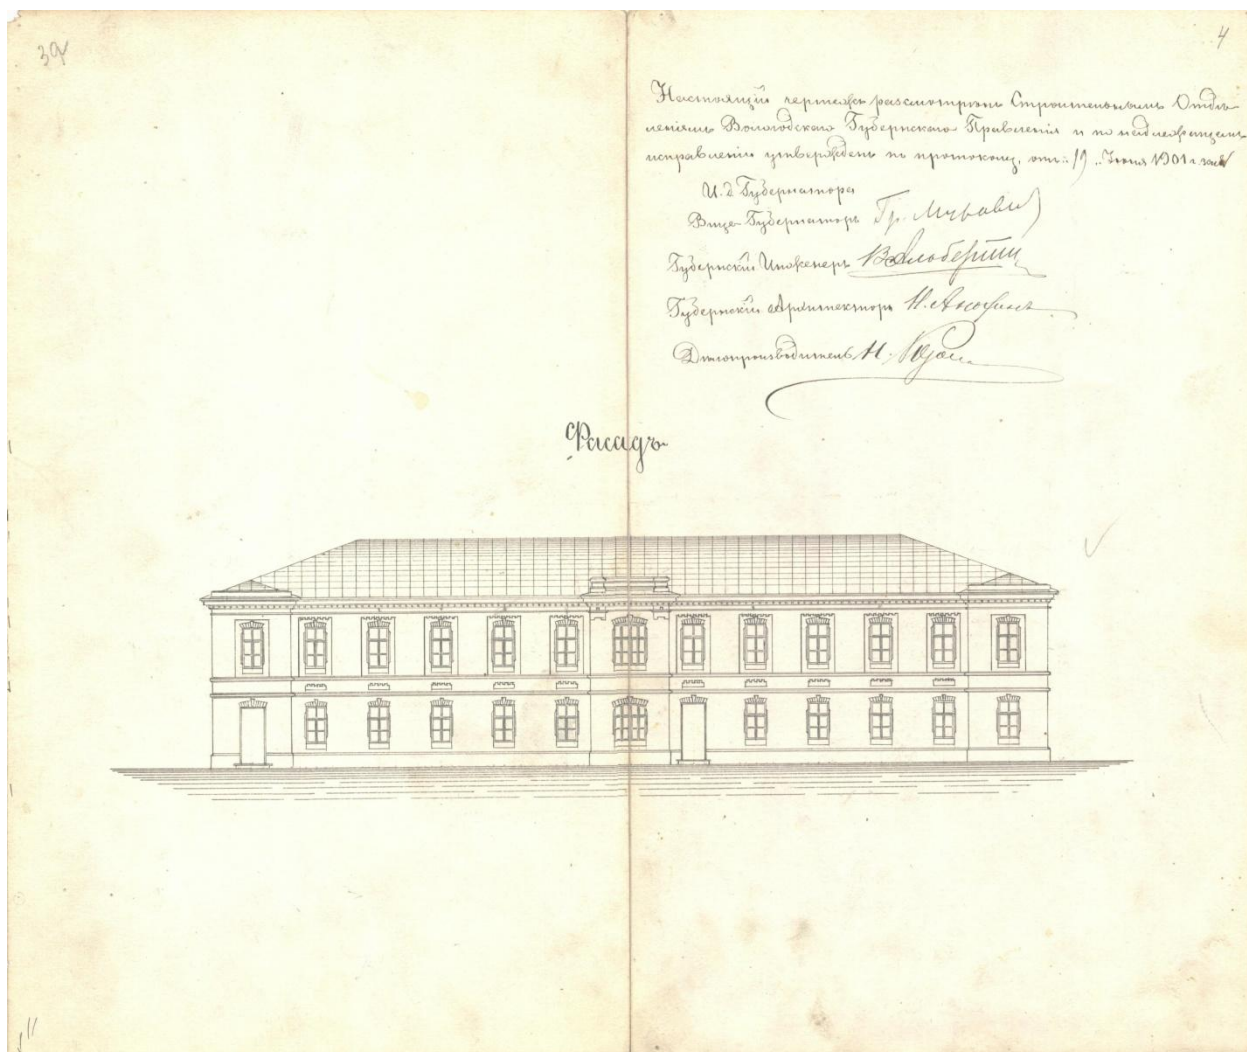 39
4
Настоящій чертежъ разсмотрѣнъ Строительнымъ Отдѣ-
леніемъ Вологодскаго Губернскаго Правленія и по надлежащемъ
исправленіи утвержденъ по протоколу, отъ "19" Іюня 1901 г. за №
И. д. Губернатора
Вице-Губернаторъ Гр. Муравь
Губернскій Инженеръ В. Альберти
Губернскій Архитекторъ
Дѣлопроизводитель Н.
Фасадъ